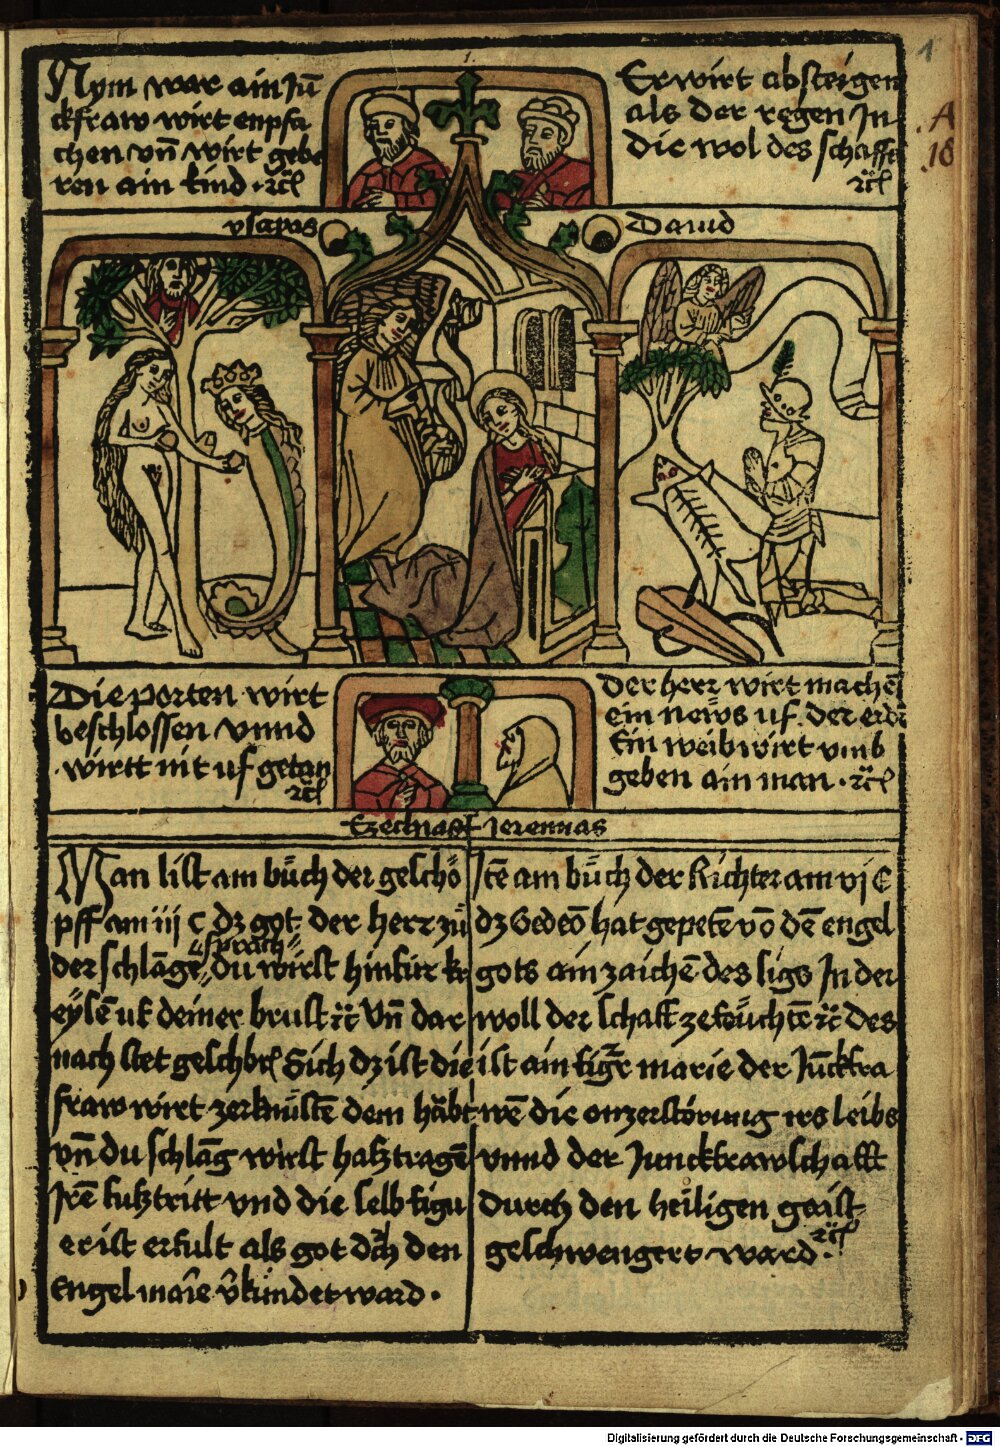 Nym war ain Jū
ckfraw wirt enpfa
chen vn̄ wirt gebe
ren ain kind · ꝛc̄
.i.
Er wirt absteigen
als der regen Jn
die wol des schaffs
ꝛc̄
1
.A
.18
ysayas
Dauid
Die porten wirt
beschlossen vnnd
wirtt nit uf getan
ꝛc̄
Der herr wirt machē
ein neẅs uf der erdē
Ein weib wirt vmb
geben ain man · ꝛc̄
Ezechiass Jeremias
Man list am bůch der geschö
pff am iij c dz got der herr zů
der schlāge du wirst hinfür kr
sprach
eÿsē uf deiner brust ꝛc̄ Vn̄ dar
nach stet geschbē Sich dz ist die
fraw wirt zerknüstē dem häbt
vn̄ du schlāg wirst hasz tragē
Jrē fusztritt vnd die selb figu
er ist erfult als got dch den
Engel marie v̄kündet ward ·
Jtē am bůch der Richter am vj c
dz Gedeō hat gepetē vō dē engel
gots ain zaichē des sigs Jn der
woll der schaff ze feüchtē ꝛc̄ des
ist ain figr marie der Jūckfra
wē die onzerstörung irs leibs
vnnd der Junckfrawschafft
durch den heiligen gaist
geschwengert ward · ꝛc̄
Digitalisierung gefördert durch die Deutsche Forschungsgemeinschaft - DFG